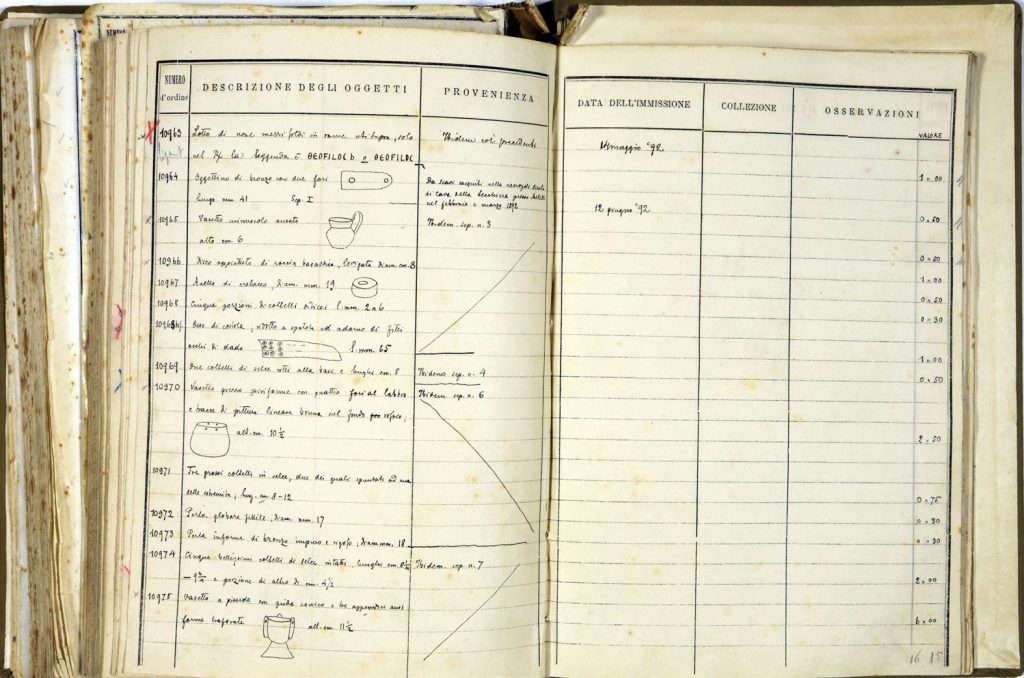 NUMERO
d'ordine
DESCRIZIONE DEGLI OGGETTI
PROVENIENZA
DATA DELL'IMMISSIONE
COLLEZIONE
OSSERVAZIONI
VALORE
10963 Lotto di nove mezzi soldi in rame ut supra, solo
nel la leggenda è ΘEOFILOC b o ΘEOFILOC
Ibidem coi precedenti
14 maggio '92
1=00
10964 Oggettino di bronzo con due fori
lungo mm. 41 Sep. I
Da scavi eseguiti nella
di Cava della
nel febbraio e marzo 1892
12 giugno '92
0=50
10965 Vasetto minuscolo ansato
alto cm. 6
Ibidem. sep. n. 3
0=50
10966 Disco appiattito di roccia basaltica, levigata diam. cm. 8
1=00
10967 Anello di calcareo, diam. mm. 19
0=50
10968 Cinque porzioni di coltelli silicei l. mm. 2 a 6
0=30
10968 bis. Osso di ridotto a spatola ed adorno di fitti
occhi di dado l. mm. 65
1=00
10969 Due coltelli di selce rotti alla base e lunghi cm. 8
Ibidem sep. n. 4
0=50
10970 Vasetto grezzo piriforme con quattro fori al labbro
e tracce di pittura lineare bruna sul fondo rosso,
alt. cm. 10 ½
Ibidem. sep. n. 6
2=50
10971 Tre grossi coltelli in selce, due dei quali spuntati ad una
delle estremità, lung. cm. 8-12
0=75
10972 Perla globare fittile, diam. mm. 17
0=30
10973 Perla informe di bronzo impuro e rigoso, diam mm. 18
0=30
10974 Cinque bellissimi coltelli di selce intatti, lunghi cm. 8¼
– 9¾ e porzione di altro di cm. 4½
Ibidem. sep. n. 7
2=00
10975 Vasetto a piede conico e appendici ansi
forme traforate alt. cm. 11½
6=00
16 15